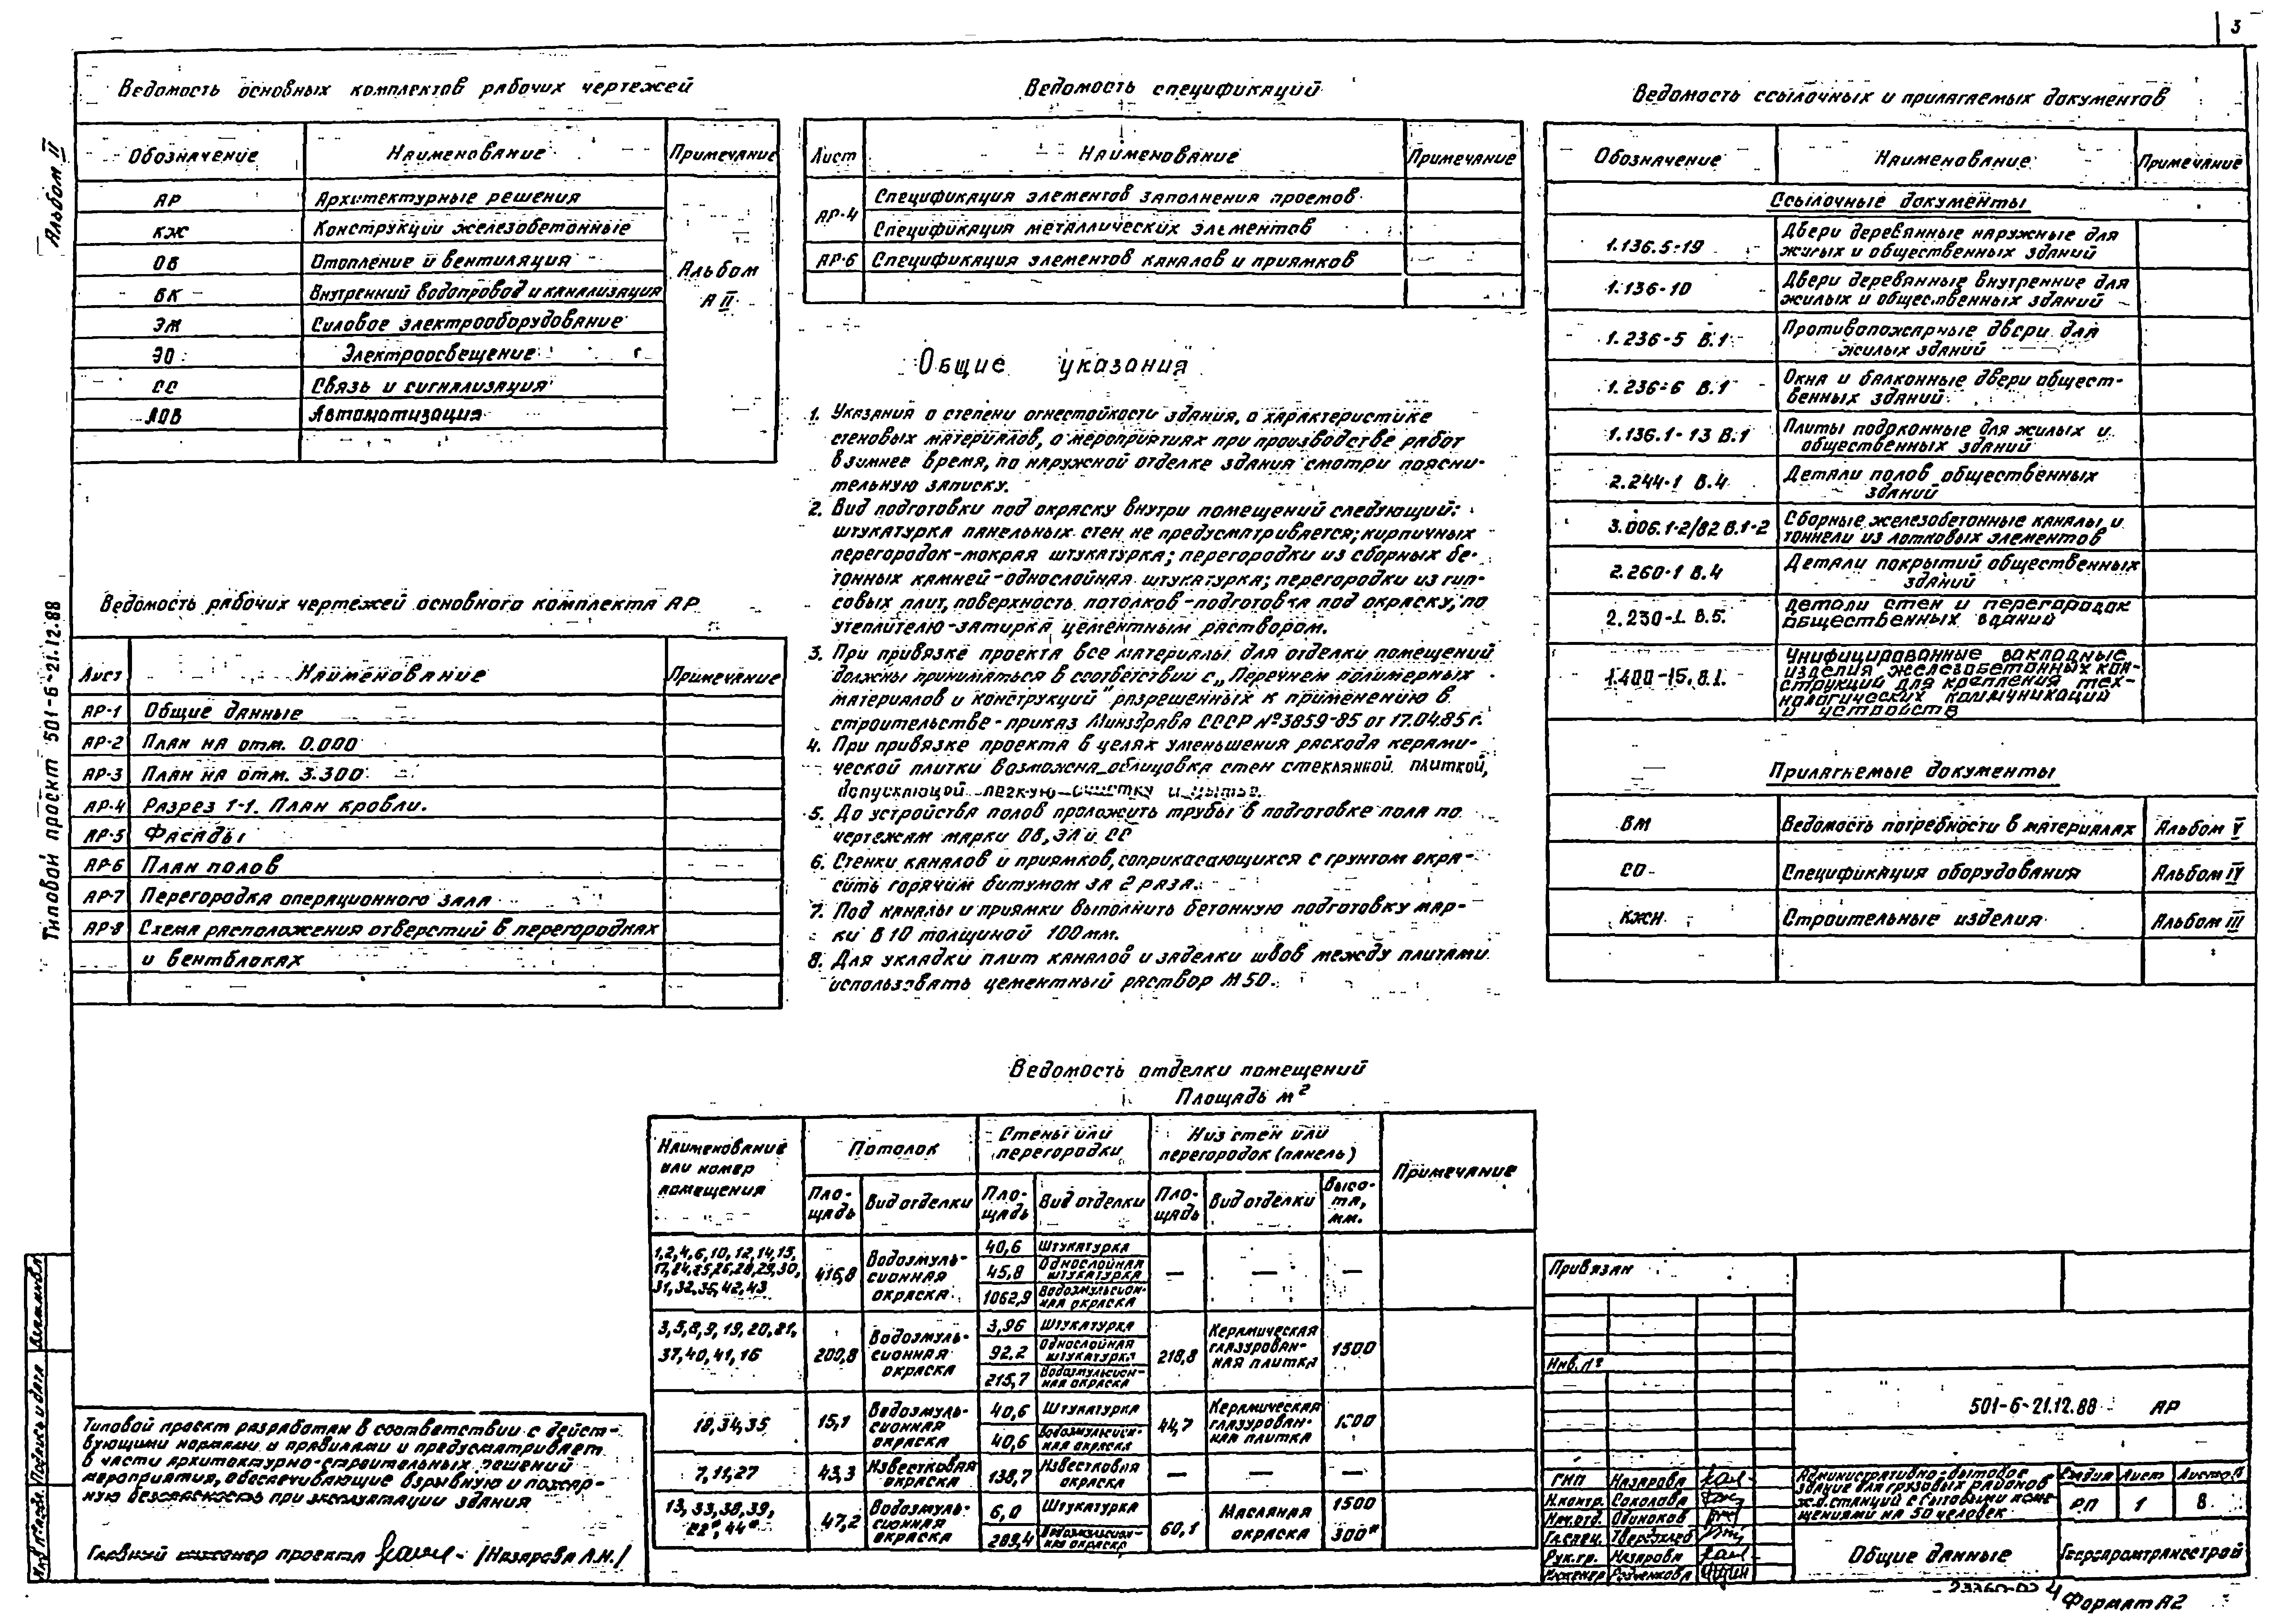 3
Альбом II
Типовой проект 501-6-21.12.88
Ведомость основных комплектов рабочих чертежей
Обозначение Наименование Примечание
АР Архитектурные решения
КЖ Конструкции железобетонные
ОВ Отопление и вентиляция
ВК Внутренний водопровод и канализация
ЭМ Силовое электрооборудование
ЭО Электроосвещение
СС Связь и сигнализация
АОВ Автоматизация
Альбом
А II
Ведомость рабочих чертежей основного комплекта АР
Лист Наименование Примечание
АР-1 Общие данные
АР-2 План на отм. 0.000
АР-3 План на отм. 3.300
АР-4 Разрез 1-1. План кровли.
АР-5 Фасады
АР-6 План полов
АР-7 Перегородка операционного зала
АР-8 Схема расположения отверстий в перегородках
и вентблоках
Ведомость спецификаций
Лист Наименование Примечание
АР-4 Спецификация элементов заполнения проемов
Спецификация металлических элементов
АР-6 Спецификация элементов каналов и приямков
Общие указания
1. Указания о степени огнестойкости здания, о характеристике
стеновых материалов, о мероприятиях при производстве работ
в зимнее время, по наружной отделке здания смотри поясни-
тельную записку.
2. Вид подготовки под окраску внутри помещений следующий:
штукатурка панельных стен не предусматривается; кирпичных
перегородок-мокрая штукатурка; перегородки из сборных бе-
тонных камней-однослойная штукатурка; перегородки из гип-
совых плит, поверхность потолков-подготовка под окраску, по
утеплителю-затирка цементным раствором.
3. При привязке проекта все материалы для отделки помещений
должны приниматься в соответствий с „Перечнем полимерных
материалов и конструкций" разрешенных к применению в
строительстве-приказ Минздрава СССР №3859-85 от 17.04.85 г.
4. При привязке проекта в целях уменьшения расхода керами-
ческой плитки возможна облицовка стен стеклянной плиткой,
допускающей легкую очистку и мытье.
5. До устройства полов проложить трубы в подготовке пола по
чертежам марки ОВ, ЭЛ и СС
6. Стенки каналов и приямков, соприкасающихся с грунтом окра-
сить горячим битумом за 2 раза.
7. Под каналы и приямки выполнить бетонную подготовку мар-
ки В10 толщиной 100мм.
8. Для укладки плит каналов и заделки швов между плитами
использовать цементный раствор М50.
Ведомость ссылочных и прилагаемых документов
Обозначение Наименование Примечание
Ссылочные документы
1.136.5-19 Двери деревянные наружные для
жилых и общественных зданий
1.136-10 Двери деревянные внутренние для
жилых и общественных зданий
1.236-5 В.1 Противопожарные двери для
жилых зданий
1.236-6 В.1 Окна и балконные двери общест-
венных зданий
1.136.1-13 В.1 Плиты подоконные для жилых и
общественных зданий
2.244-1 В.4 Детали полов общественных
зданий
3.006.1-2/82 В.1-2 Сборные железобетонные каналы и
тоннели из лотковых элементов
2.260-1 В.4 Детали покрытий общественных
зданий
2.230-1. В.5. Детали стен и перегородок
общественных зданий
1.400-15. В.1. Унифицированные закладные
изделия железобетонных кон-
струкций для крепления тех-
нологических коммуникаций
и устройств
Прилагаемые документы
ВМ Ведомость потребности в материалах Альбом V
СО Спецификация оборудования Альбом IV
КЖИ Строительные изделия Альбом III
Ведомость отделки помещений
Площадь м²
Наименование
или номер
помещения
Потолок
Стены или
перегородки
Низ стен или
перегородок (панель)
Примечание
Пло-
щадь
Вид отделки
Пло-
щадь
Вид отделки
Пло-
щадь
Вид отделки
Высо-
та,
мм.
1,2,4,6,10,12,14,15,
17,24,25,26,28,29,30,
31,32,36,42,43
416,8
Водоэмуль-
сионная
окраска
40,6 Штукатурка
45,8 Однослойная
штукатурка
1062,9 Водоэмульсион-
ная окраска
— — —
3,5,8,9,19,20,21,
37,40,41,16
200,8
Водоэмуль-
сионная
окраска
3,96 Штукатурка
92.2 Однослойная
штукатурка
215,7 Водоэмульсион-
ная окраска
218,8
Керамическая
глазурован-
ная плитка
1500
18,34,35
15,1
Водоэмуль-
сионная
окраска
40,6 Штукатурка
40,6 Водоэмульсион-
ная окраска
44,7
Керамическая
глазурован-
ная плитка
7,11,27
43,3
Известковая
окраска
138,7
Известковая
окраска
— — —
13,33,38,39,
22*,44*
47,2
Водоэмуль-
сионная
окраска
6,0 Штукатурка
Водоэмульсион-
ная окраска
60,1
Масляная
окраска
1500
300*
Типовой проект разработан в соответствии с дейст-
вующими нормами и правилами и предусматривает
в части архитектурно-строительных решений
мероприятия, обеспечивающие взрывную и пожар-
ную безопасность при эксплуатации здания
Главный инженер проекта /Назарова Л.Н./
Подпись и дата
Привязан
Инв.№
501-6-21.12.88 АР
ГИП Назарова
Н.контр. Соколова
Нач.отд. Одиноков
Гл.спец.
Рук.гр. Назарова
Инженер
Административно-бытовое
здание для грузовых районов
ж.д. станций с бытовыми поме-
щениями на 50 человек
Стадия Лист Листов
РП 1 8
Общие данные
Гипропромтрансстрой
Формат А2